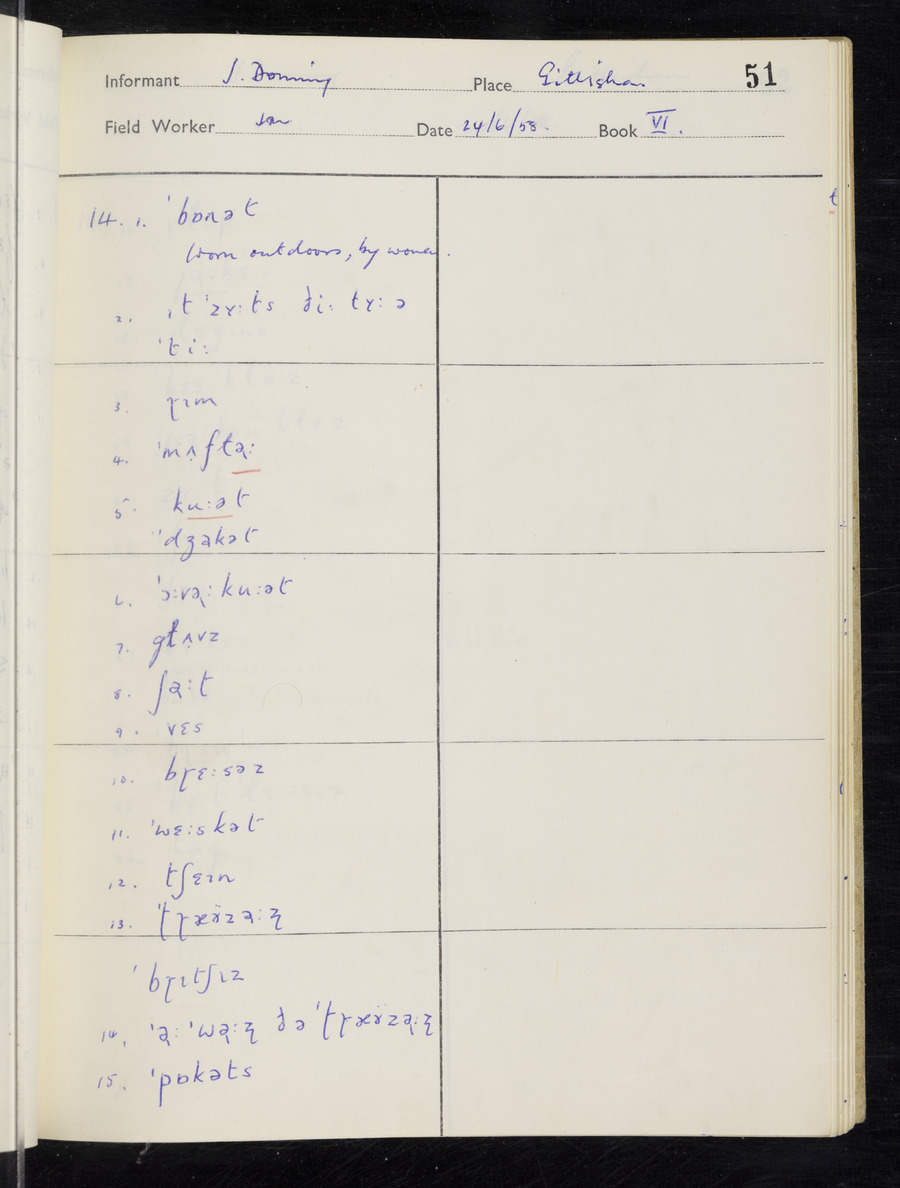 Informant J. Downing Place Gittisham 51
Field Worker Date 24/6/58. Book VI.
14. 1. ˈbɒnət
Worn outdoors, by women.
2. ɪt ˈzʏːts ðiː tʏːə
ˈtiː
3. ɽɪm
4. ˈmʌ̣ftəɽː
5. kuːət
ˈdʒakət
6. ˈɔːvəɽː kuːət
7. gɫʌ̣vz
8. ʃəɽːt
9. vɛs
10. bɽɛːsəz
11. ˈwɛːskət
12. tʃɛɪn
13. ˈʈɽæʏ̈zəɽːʐ
ˈbɽɪtʃɪz
14. ˈəɽː ˈwəɽːʐ ðə ˈʈɽæʏ̈zəɽːʐ
15. ˈpɒkəts